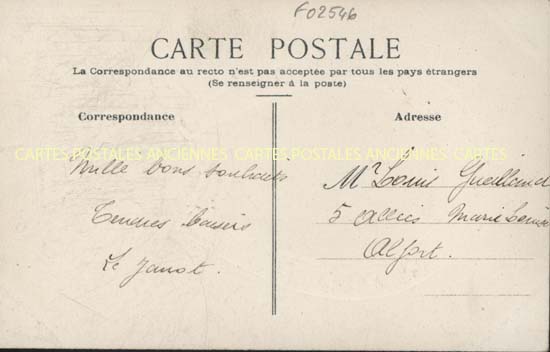 F02546
CARTE POSTALE
La Correspondance au recto n'est pas acceptée par tous les pays étrangers
(Se renseigner à la poste)
Correspondance
Adresse
CARTES POSTALES ANCIENNES CARTES POSTALES ANCIENNES CARTES
Mille bons souhaits
Tendres baisers
Le Janot.
Mr Louis
5 allées Marie Louise
Alfort.